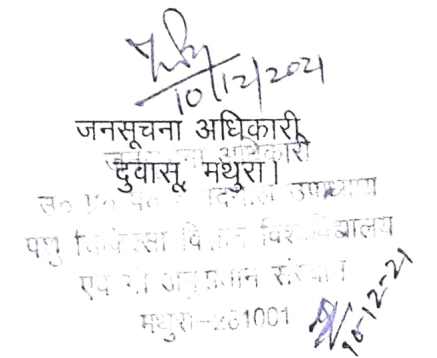 10/12/2021
जनसूचना अधिकारी
दुवासू, मथुरा।
अधिकारी
उपाध्याय
पशु चिकित्सा विज्ञान विश्वविद्यालय
एवं गो अनुसंधान संस्थान
मथुरा-281001
10-12-21